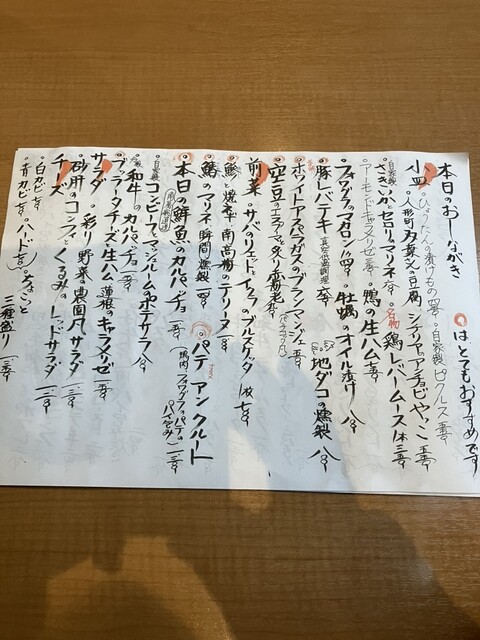 本日のおしながき
◎はとてもおすすめです
小皿
・ひょうたんの漬けもの
・自家製ピクルス
・人形町 双葉さんの豆腐 シチリヤのアンチョビやっこ
自家製
・ささいか、セロリのマリネ
名物
・鶏レバームース 1本
・アーモンドキャラメリゼ
・鴨の生ハム
・フォアグラのマカロン 1個
・牡蠣のオイル漬け 八〇〇
・豚レバテキ（真空低温調理）
・地ダコの燻製 八〇〇
・ホワイトアスパラガスのブランマンジェ
・空豆のエスプーマと桜海老
前菜
・サバリエットとイクラのブルスケッタ 1枚
・鯵と焼ネギ 南高梅のテリーヌ
・鰆のマリネ 瞬間燻製
・本日の鮮魚のカルパッチョ
◎パテアンクルート
（鴨肉、フォアグラ、パテのパイ包み）
自家製
・コンビーフとマッシュルームのポテサラ 八〇〇
・和牛のカルパッチョ
・ブッラータチーズと生ハム 蓮根のキャラメリゼ
サラダ
・彩り野菜の農園風サラダ
・砂肝のコンフィとくるみのレッドサラダ
チーズ
・白カビ
・青カビ
・ハード
・ちょこっと三種盛り